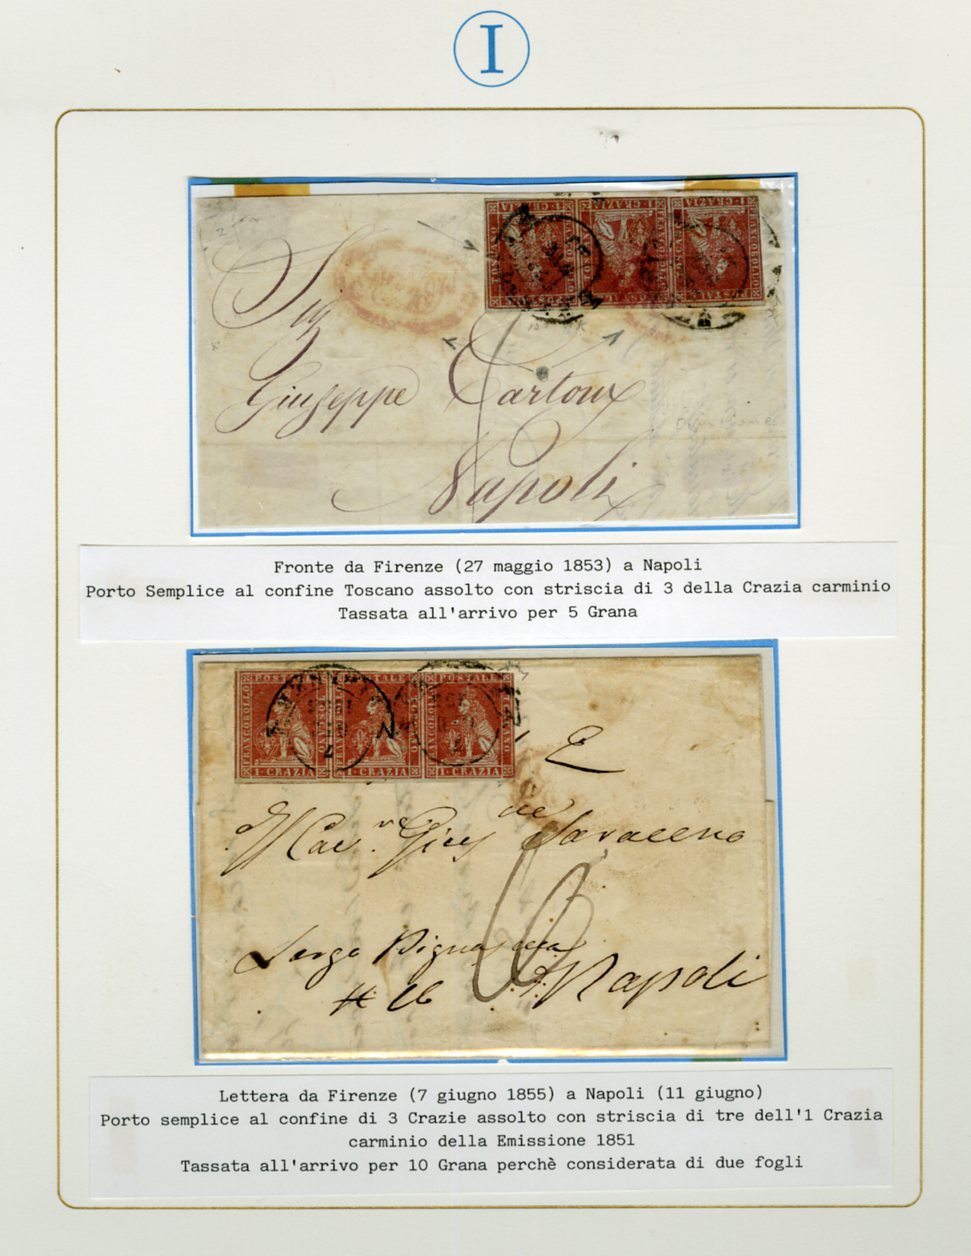 I
Sig
Giuseppe Cartoux
Napoli
Fronte da Firenze (27 maggio 1853) a Napoli
Porto Semplice al confine Toscano assolto con striscia di 3 della Crazia carminio
Tassata all'arrivo per 5 Grana
POSTALE POSTALE POSTALE
1·CRAZIA 1·CRAZIA 1·CRAZIA
Saraceno
Largo
# 26 Napoli
Lettera da Firenze (7 giugno 1855) a Napoli (11 giugno)
Porto semplice al confine di 3 Crazie assolto con striscia di tre dell'1 Crazia
carminio della Emissione 1851
Tassata all'arrivo per 10 Grana perchè considerata di due fogli